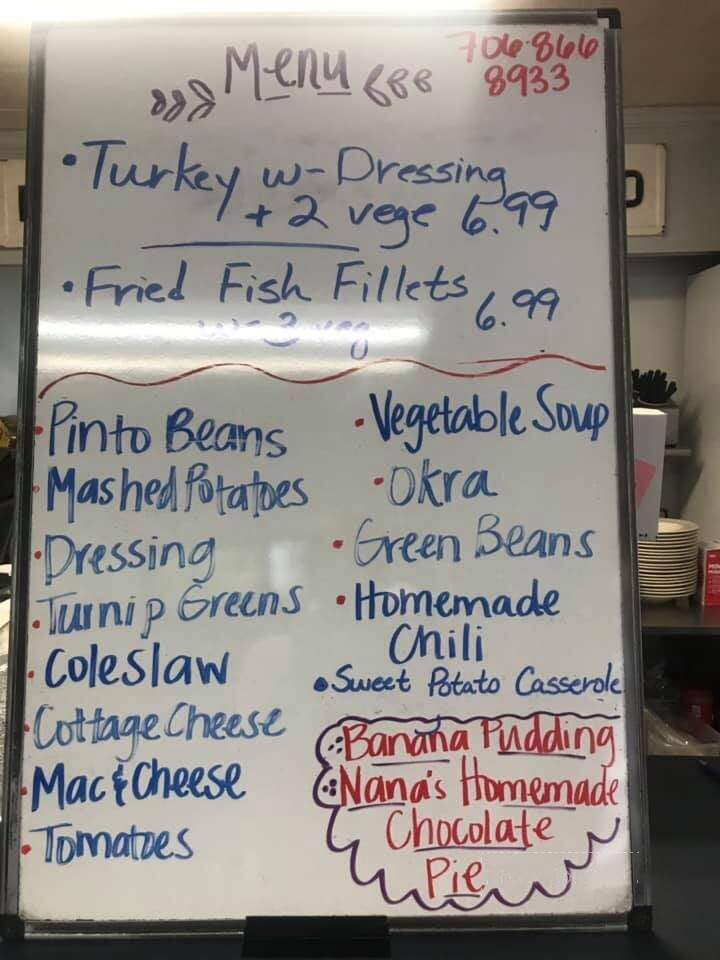 Menu
706·866
8933
• Turkey w- Dressing
+ 2 vege 6.99
• Fried Fish Fillets 6.99
w- 3 veg
• Pinto Beans
• Mashed Potatoes
• Dressing
• Turnip Greens
• Coleslaw
• Cottage Cheese
• Mac & Cheese
• Tomatoes
• Vegetable Soup
• Okra
• Green Beans
• Homemade
Chili
• Sweet Potato Casserole
Banana Pudding
Nana's Homemade
Chocolate
Pie